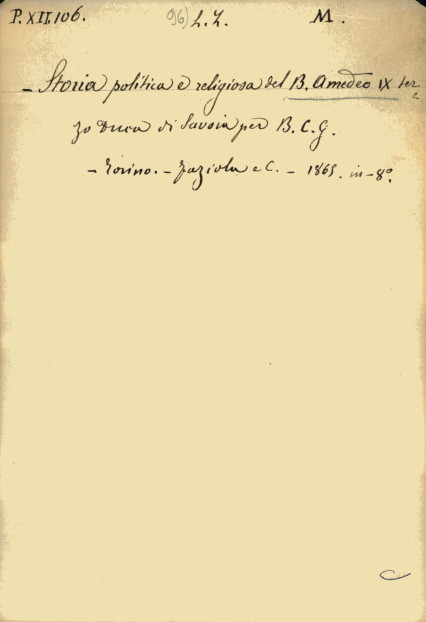 P. XII. 106. 96) L. Z. M.
– Storia politica e religiosa del B. Amedeo IX ter=
zo Duca di Savoia per B. C. G.
– Torino. – Faziola e C. – 1865. in–8º.